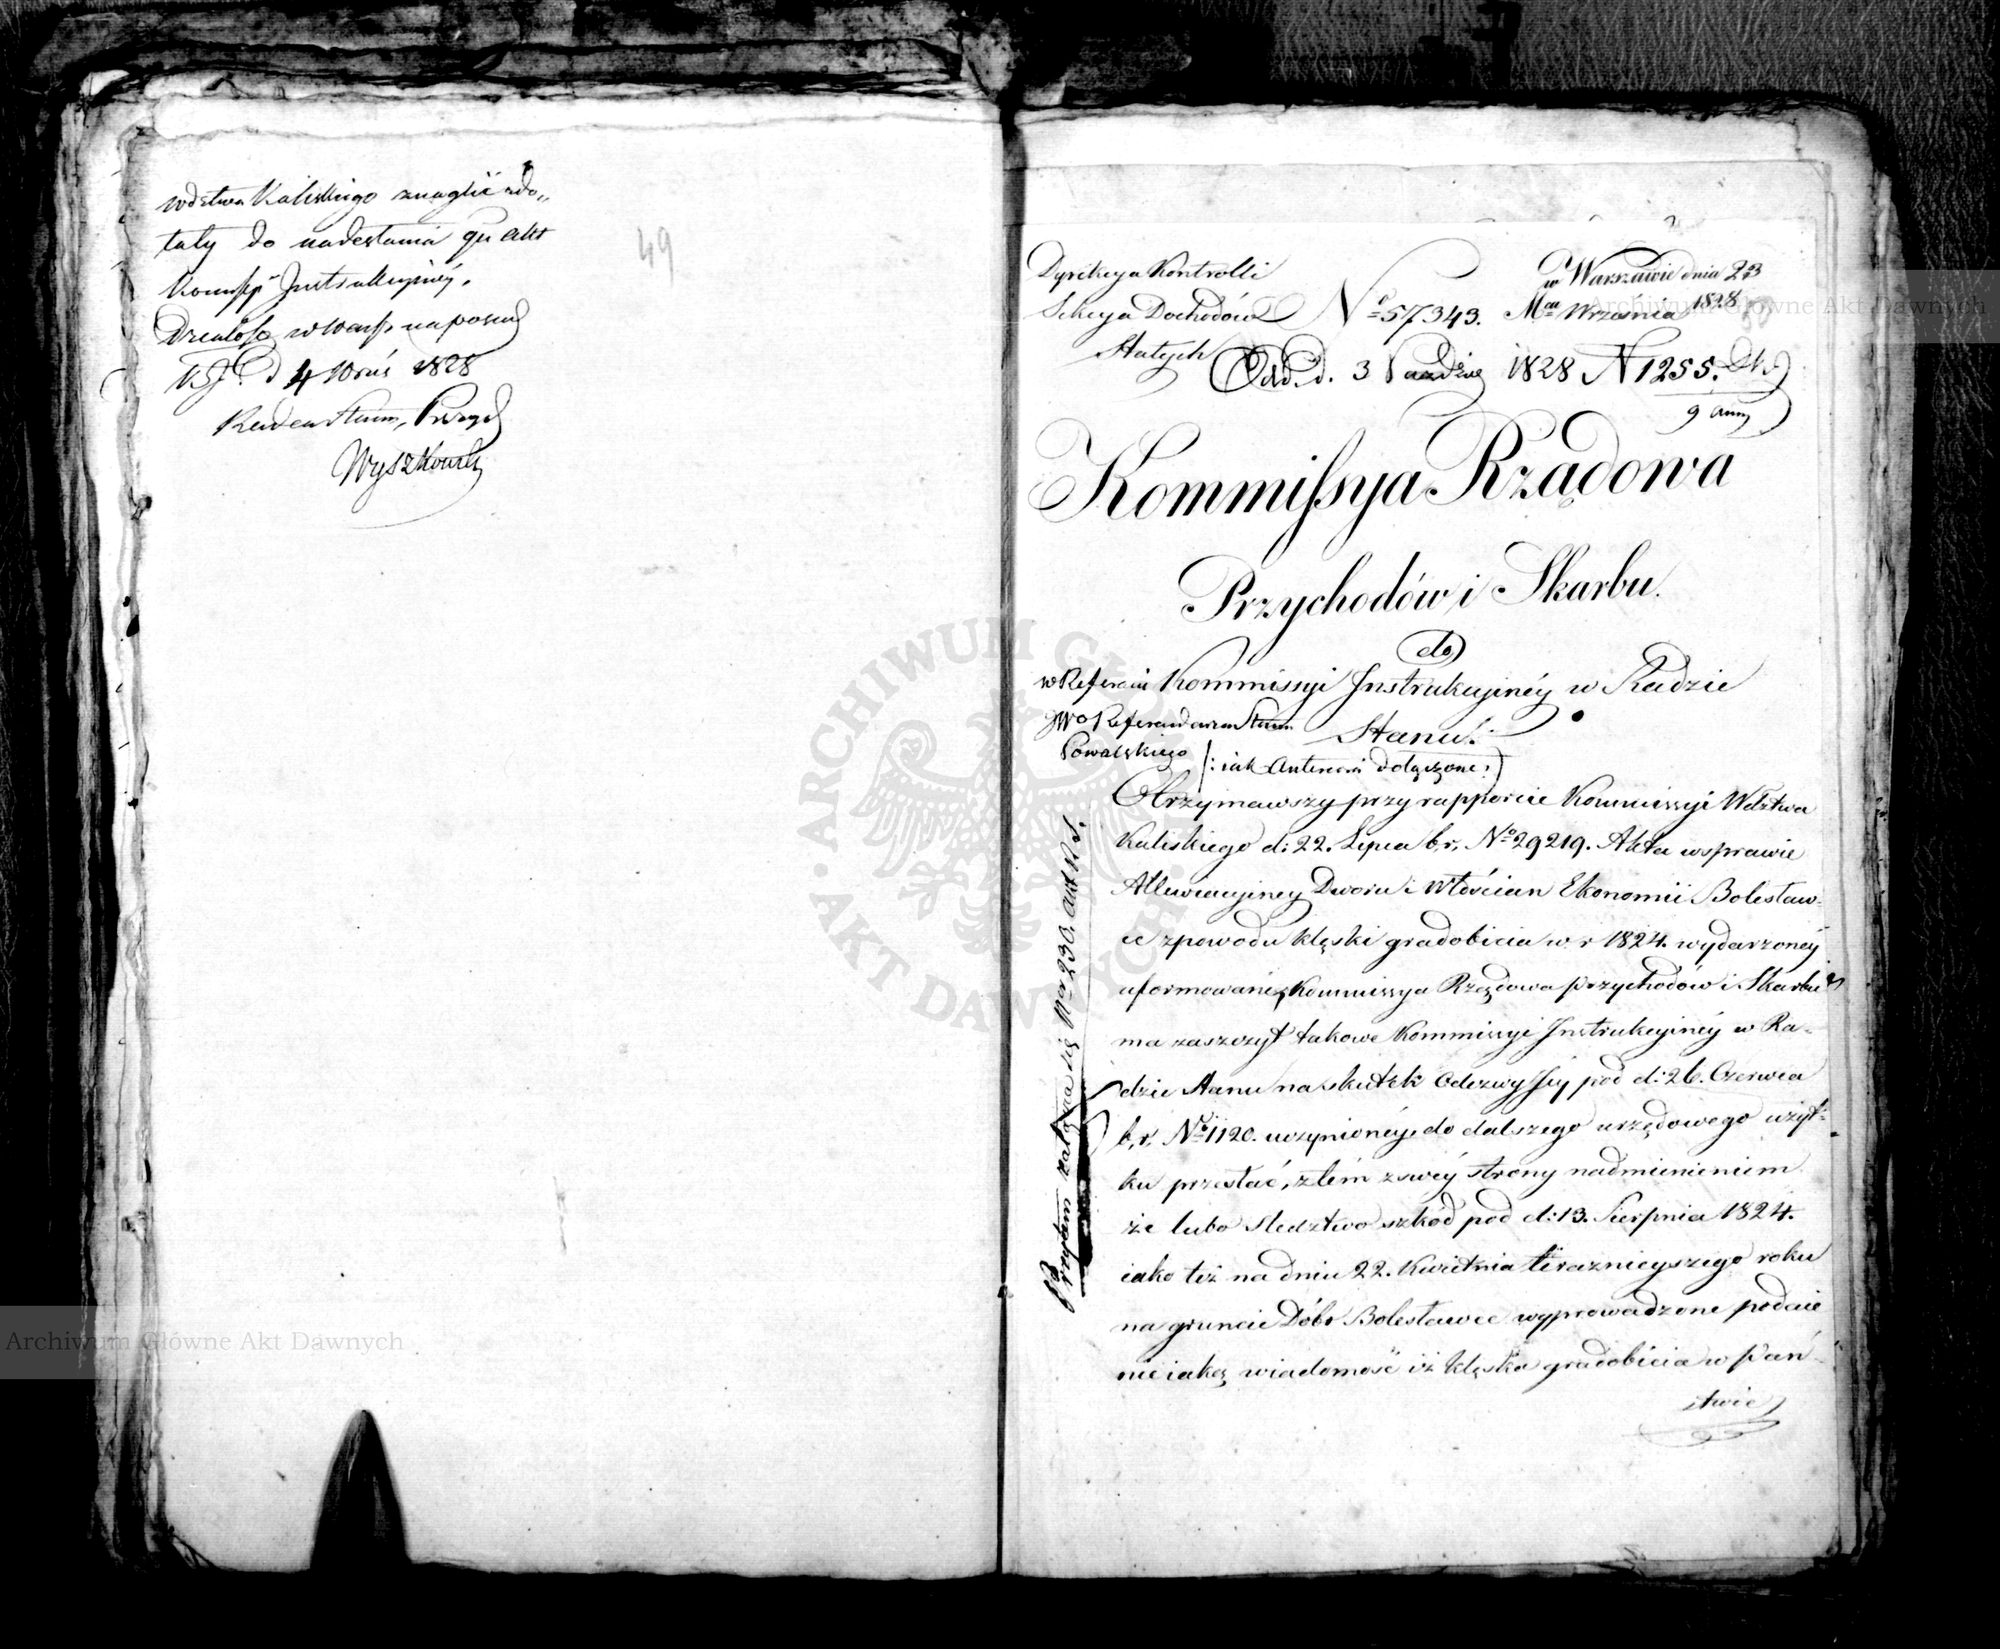 wdztwa Kaliskiego znaglić zdo„
łały do nadesłania qu Akt
Kommissyi Instrukcyiney.
Działo się w Warsz. na posied.
K. J. d. 4 Wrześ 1828
Radca Stanu, Prezyd.
Wyszkowski
49
Dyrekcya Kontrolli
Sekcya Dochodów
Stałych
No 57343.
w Warszawie dnia 23
Mca Września 1828
Odd. d. 3 Paździer 1828 N 1255.
9 ann
Kommissya Rządowa
Przychodów i Skarbu.
do
Kommissyi Instrukcyinéy w Radzie
Stanu.
w Referacie
JWo Referendarza Stanu
Powalskiego
/: iak Anteriora dołączone :/
Otrzymawszy przy rapporcie Kommissyi Wdztwa
Kaliskiego d: 22. Lipca b.r. No 29219. Akta w sprawie
Allewiacyiney Dworu i Włościan Ekonomii Bolesław-
ce z powodu klęski gradobicia w r 1824. wydarzonéy
uformowane, Kommissya Rządowa Przychodów i Skarbu
ma zaszczyt takowe Kommissyi Instrukcyinéy w Ra-
dzie Stanu na skutek Odezwy Jéy pod d: 26. Czerwca
b.r. No 1120. uczynionéy, do dalszego urzędowego użyt-
ku przesłać, z tém z swéy strony nadmienieniem
że lubo sledztwo szkód pod d: 13. Sierpnia 1824.
iako też na dniu 22. Kwietnia teraznieyszego roku
na gruncie Dóbr Bolesławce wyprowadzone podaie
nieiaką wiadomość iż klęska gradobicia w Pań-
stwie
Przytem załącza się Ner 230. akt K. S.
Archiwum Główne Akt Dawnych
Archiwum Główne Akt Dawnych
ARCHIWUM GŁÓWNE AKT DAWNYCH